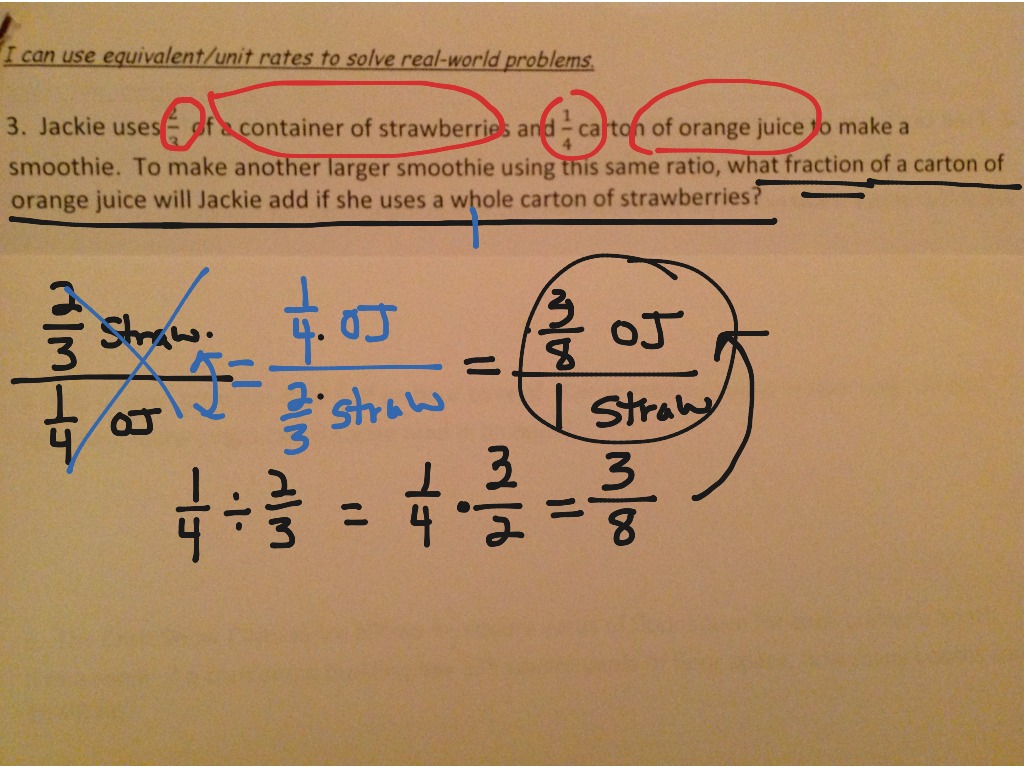 I can use equivalent/unit rates to solve real-world problems.
3. Jackie uses 2/3 of a container of strawberries and 1/4 carton of orange juice to make a
smoothie. To make another larger smoothie using this same ratio, what fraction of a carton of
orange juice will Jackie add if she uses a whole carton of strawberries?
1
2/3 straw. / 1/4 OJ = 1/4 . OJ / 2/3 . straw = 3/8 OJ / 1 straw
1/4 ÷ 2/3 = 1/4 · 3/2 = 3/8